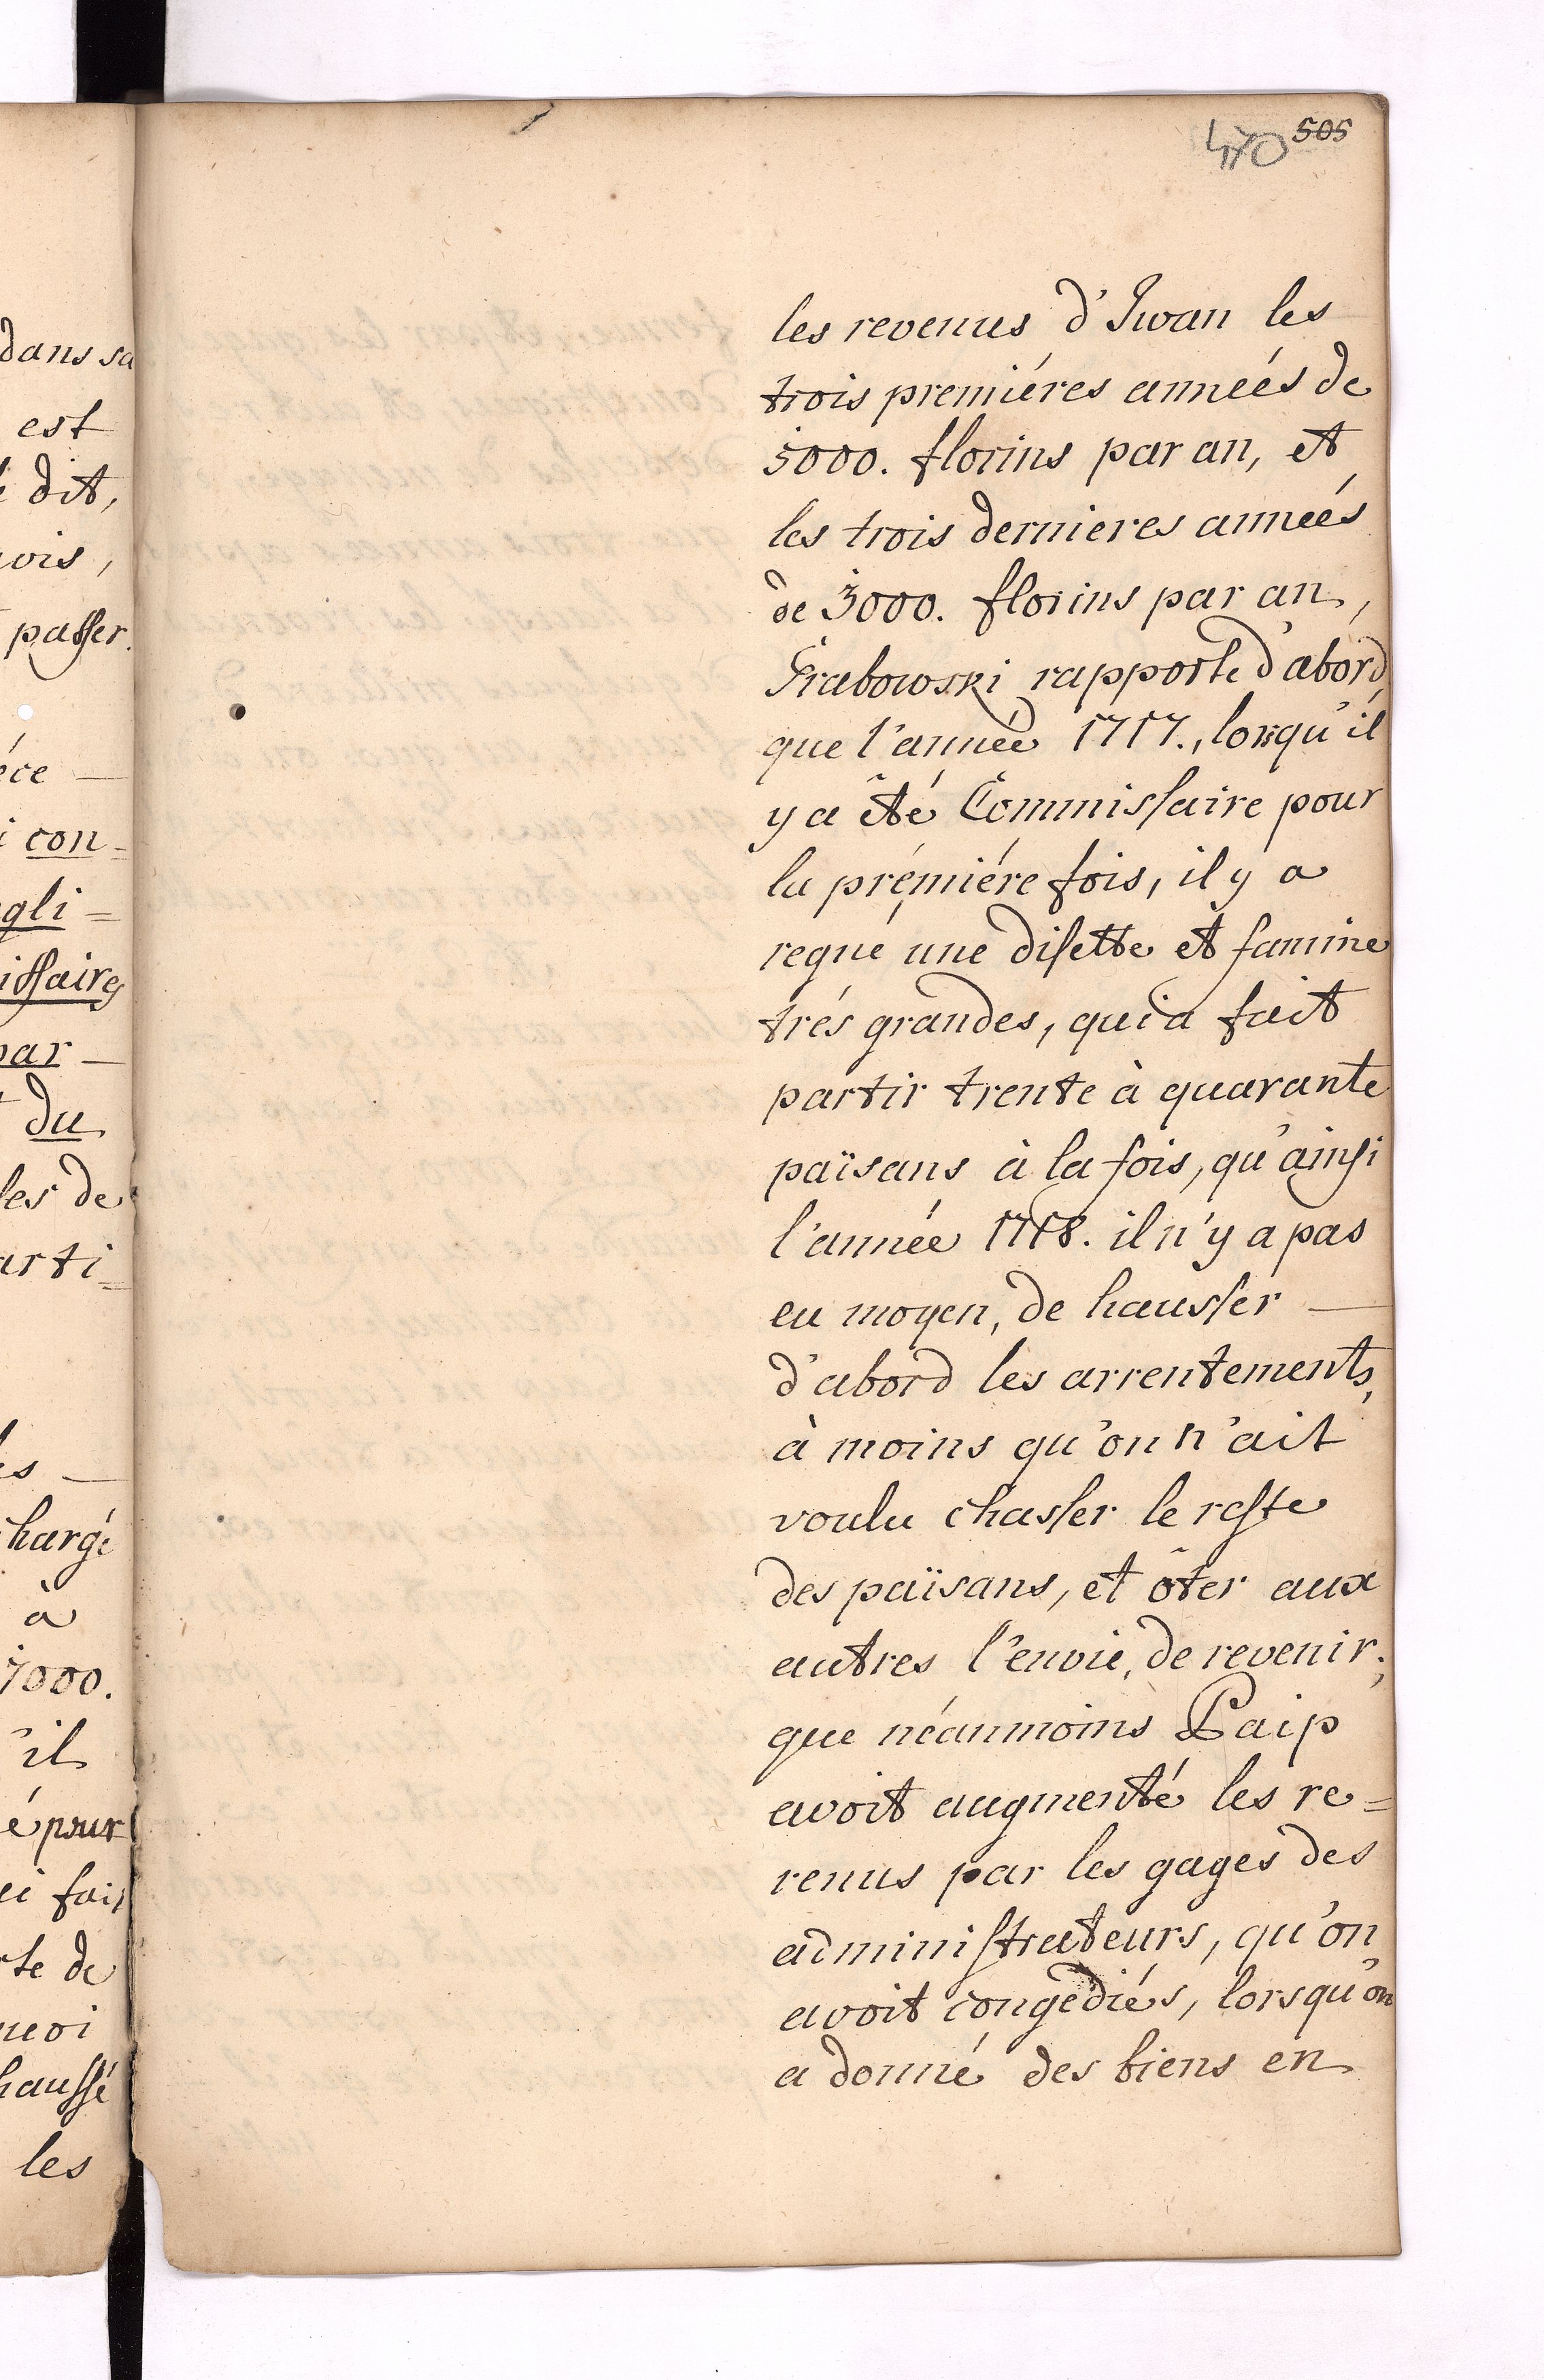 470 505
les revenus d'Iwan les
trois premiéres anneés de
5000. florins par an, et
les trois dernieres anneés
de 3000. florins par an,
Grabowski rapporte d'abord
que l'année 1717., lorsqu'il
y a êté Commissaire pour
la prémiére fois, il y a
regné une disette et famine
trés grandes, qui a fait
partir trente à quarante
païsans à la fois, qu'ainsi
l'année 1718. il n'y a pas
eu moyen, de hausser —
d'abord les arrentements,
à moins qu'on n'ait
voulu chasser le reste
des païsans, et ôter aux
autres l'envie, de revenir;
que néanmoins Paip
avoit augmenté les re=
venus par les gages des
administrateurs, qu'on
avoit congediés, lorsqu'on
a donné des biens en
dans sa
est
dit,
passer.
con-
gli=
issaires
par —
du
les de
arti=
à
7000.
il
é pour
te de
haussé
les